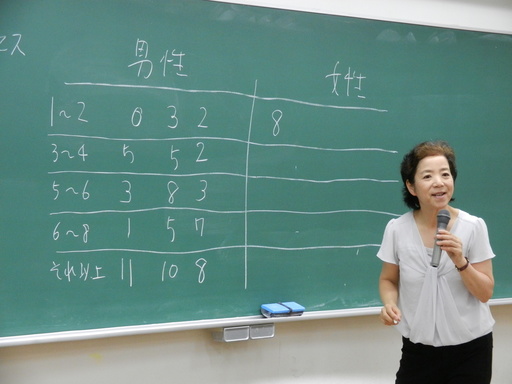 セス
男性 女性
1～2 0 3 2 8
3～4 5 5 2
5～6 3 8 3
6～8 1 5 7
それ以上 11 10 8